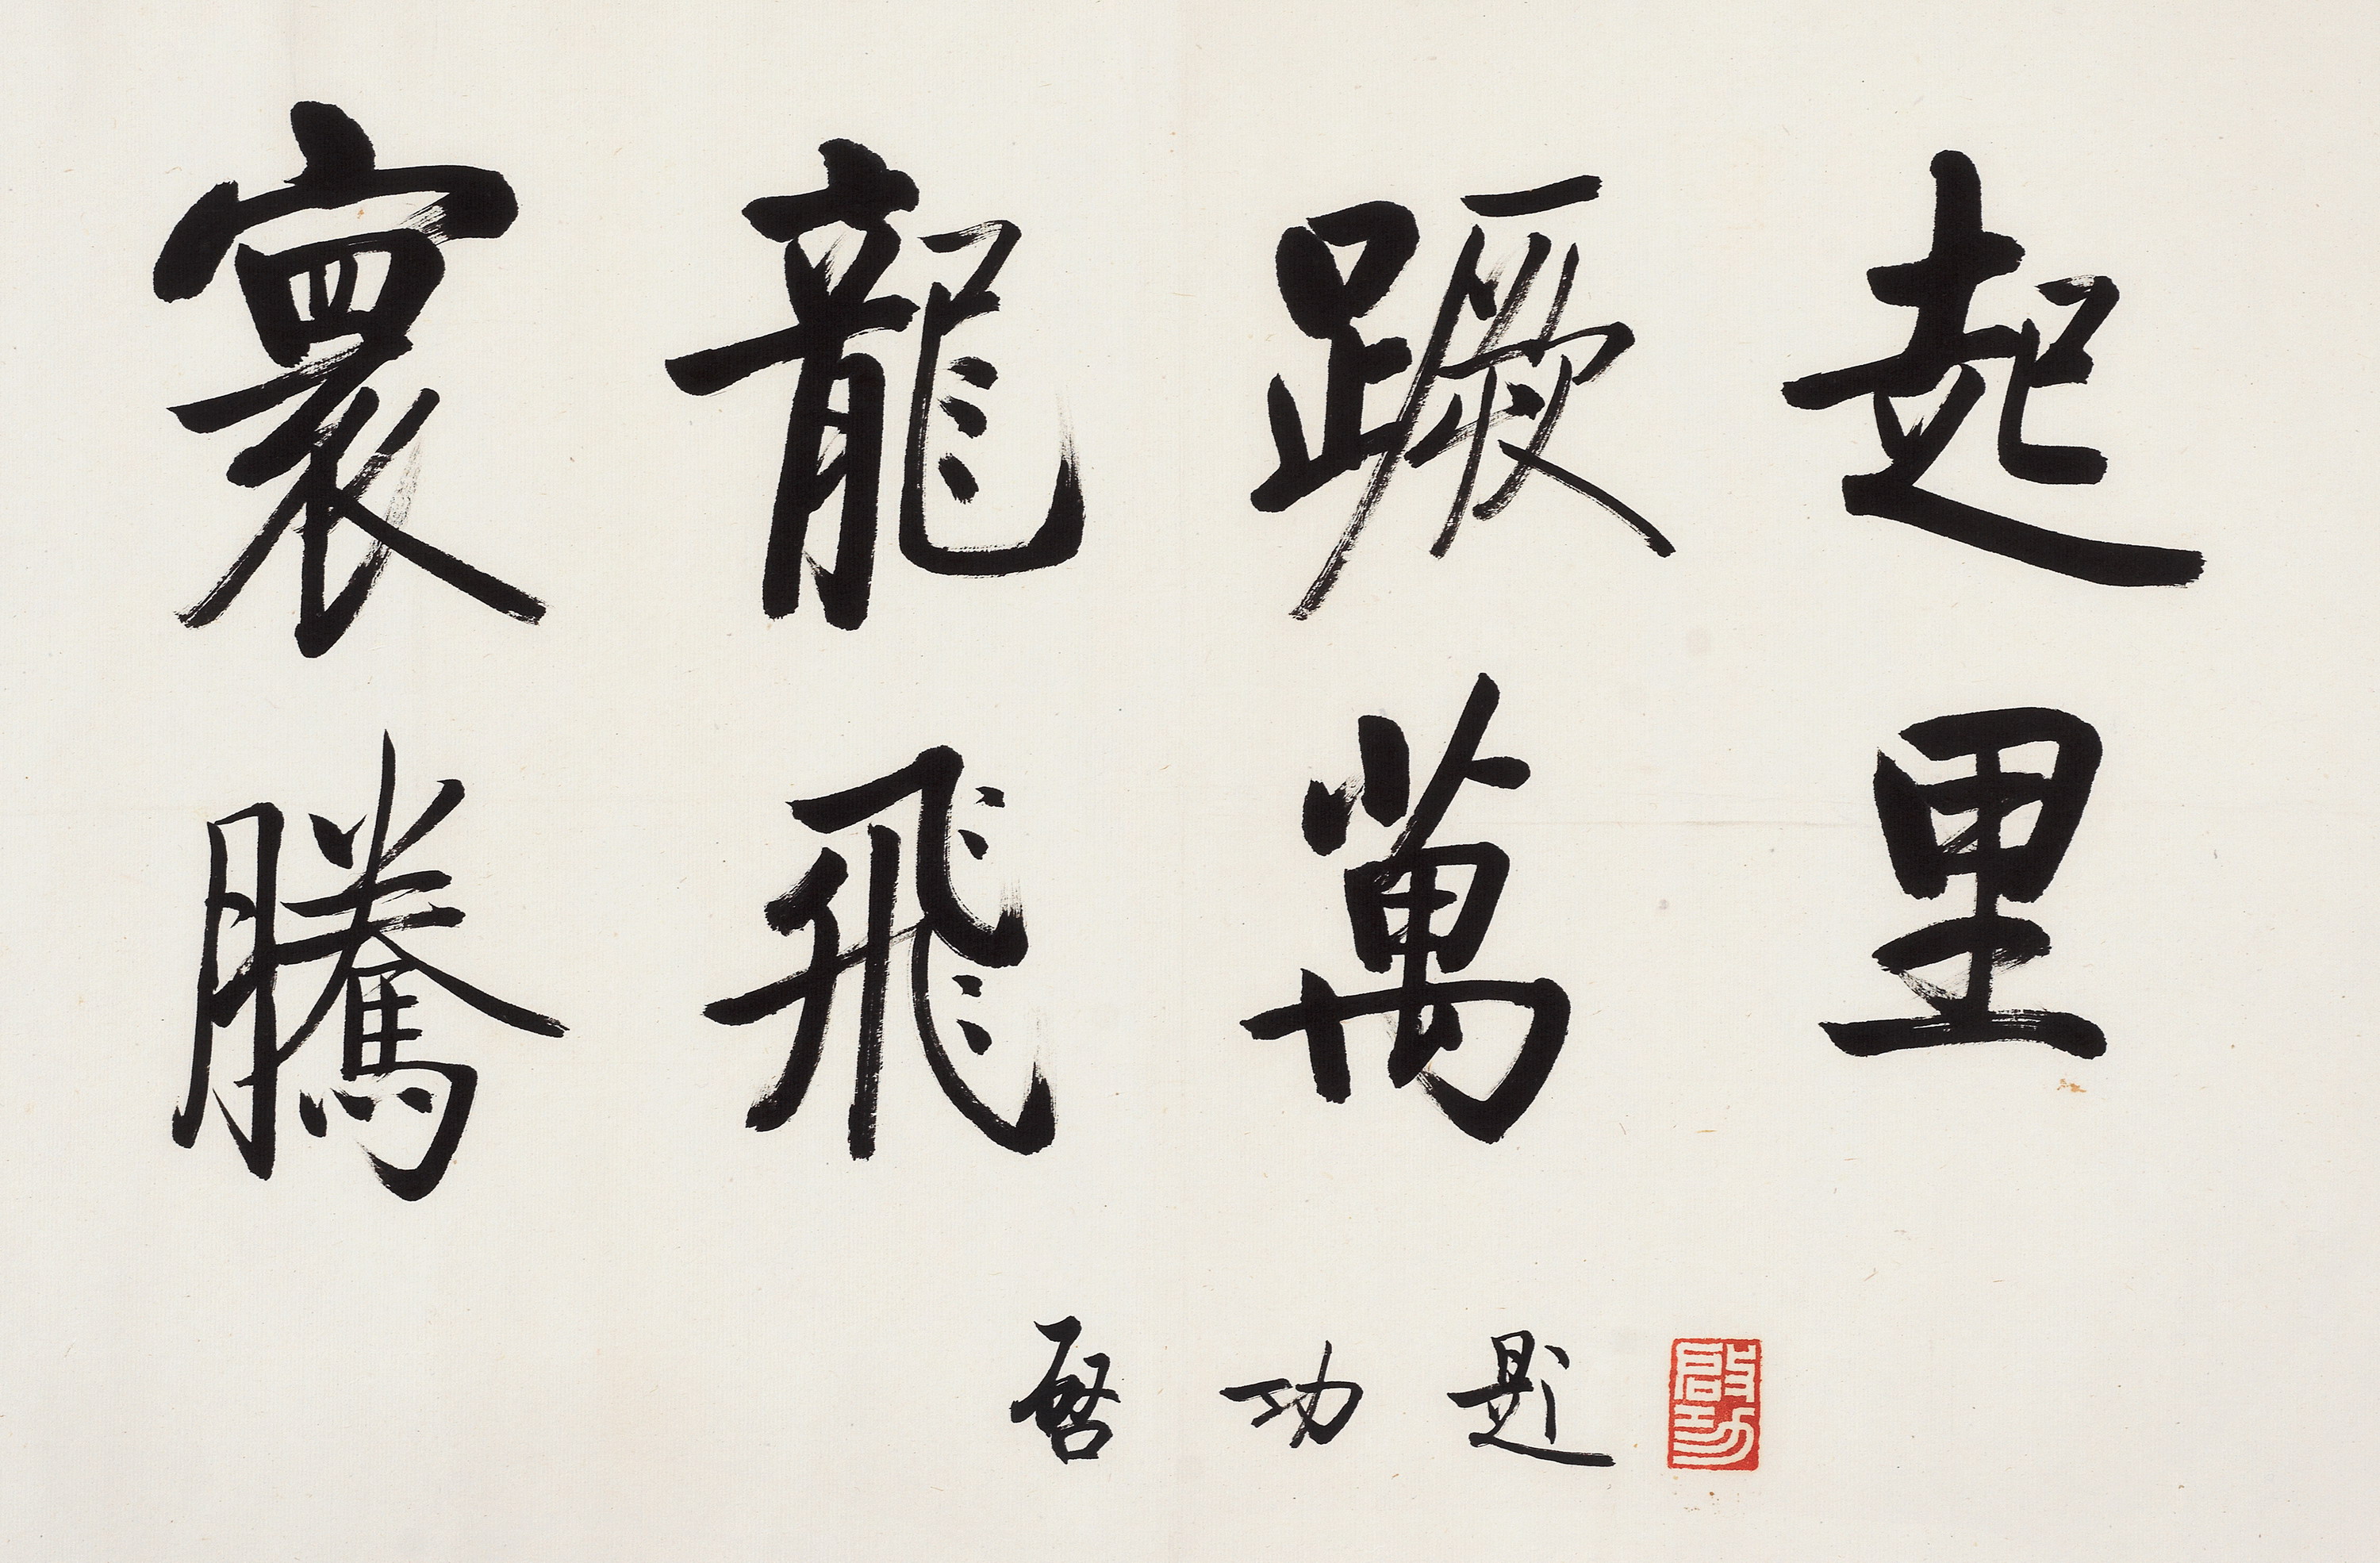 寰龍蹶起
騰飛萬里
啓功題
啓功